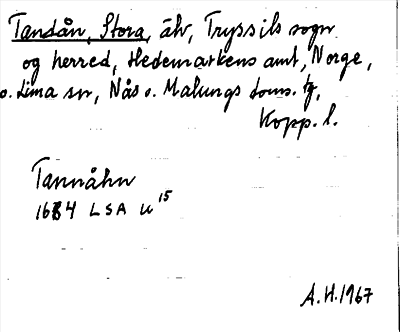 Tandån, Stora, älv, Tryssils sogn
og herred, Hedemarkens amt, Norge,
o. Lima sn, Nås o. Malungs doms. tg,
Kopp. l.
Tannåhn
1684 LSA U 15
A.H. 1967